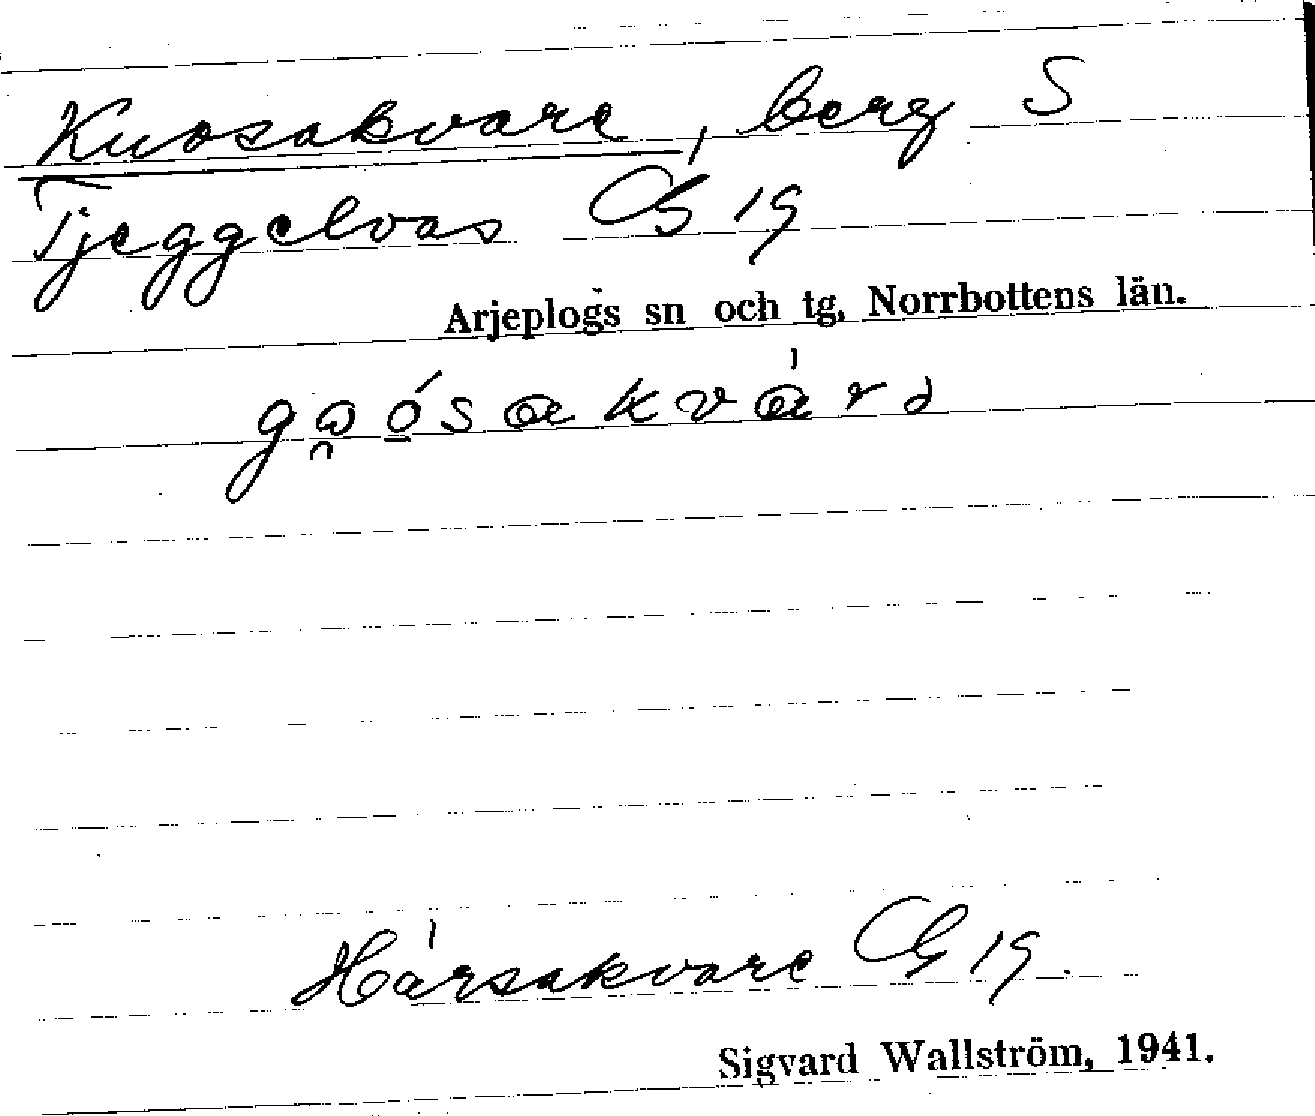 Kuosakvare, berg S
Tjeggelvas G 19
Arjeplogs sn och tg, Norrbottens län.
gω̯ó̱sakvárə
Hársakvare G 19.
Sigvard Wallström, 1941.